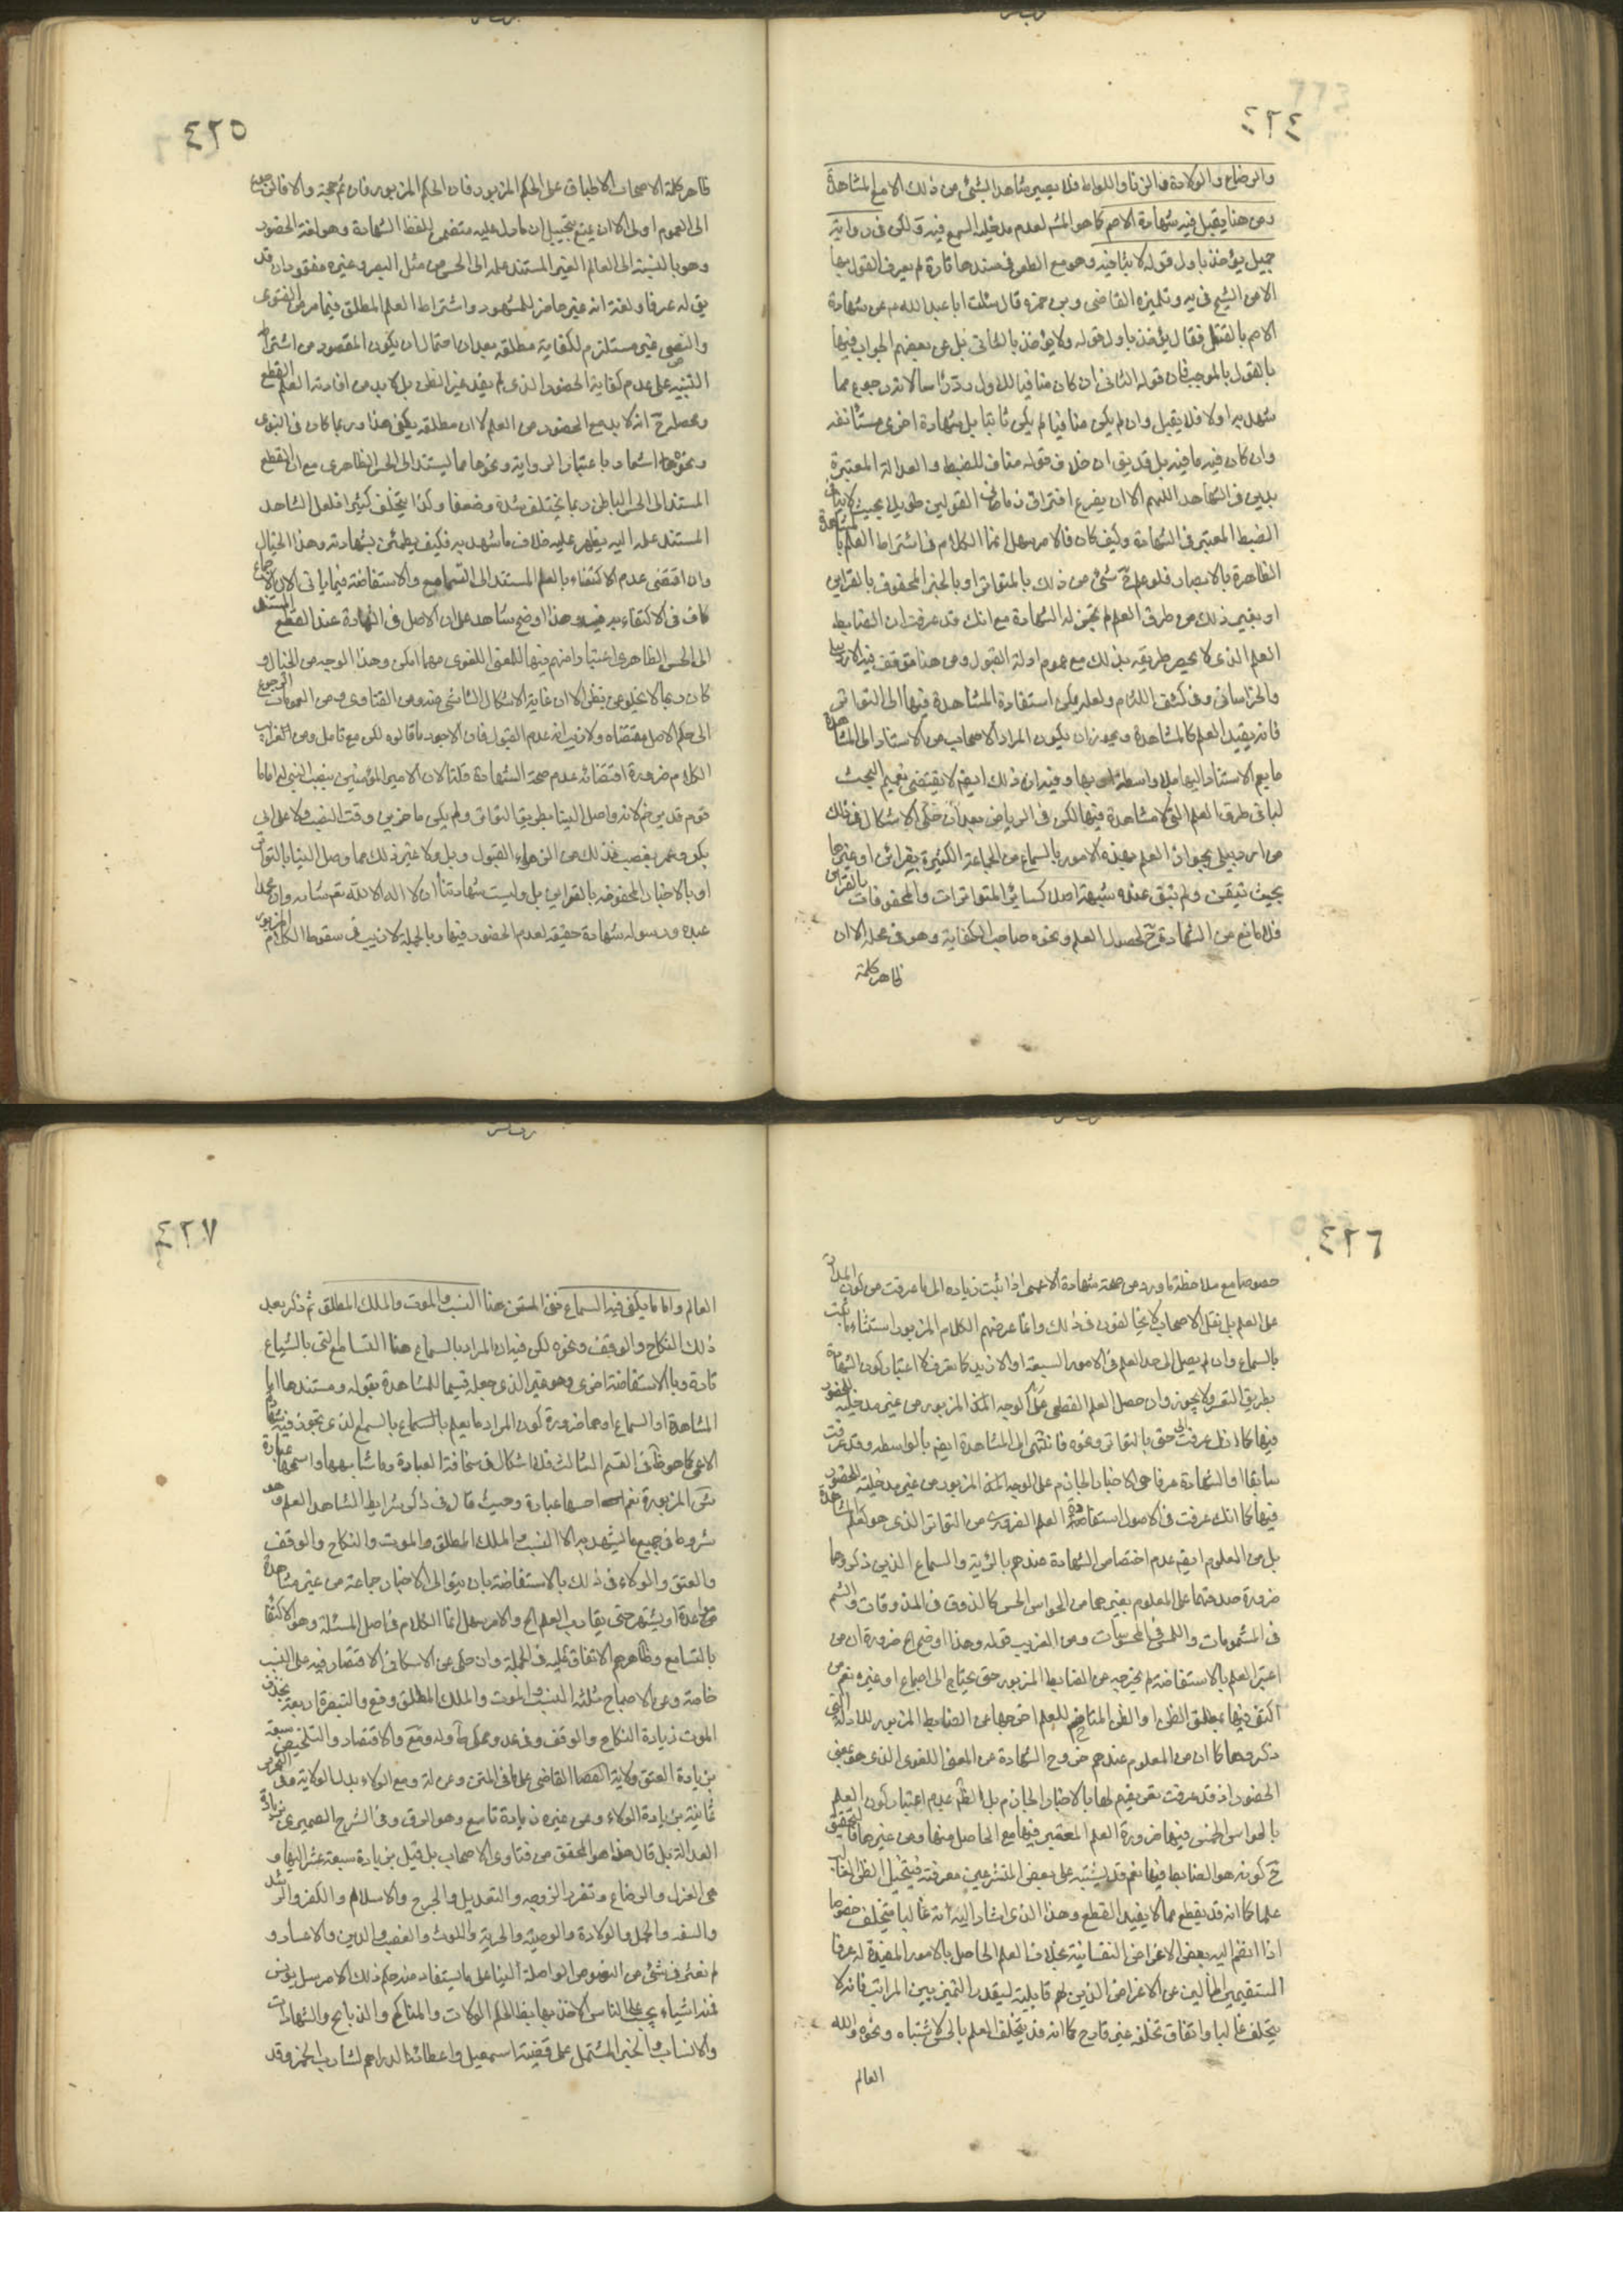 ٤٢٤
والرضاع والولادة والزنا واللواط فلا يصير شاهدا لشئ من ذلك الا مع المشاهدة
ومن هنا يقبل فيه شهادة الاصم كما هو المشهور لعدم مدخلية السمع فيه ولكن في رواية
جميل يؤخذ باول قوله لا بثانيه وهو مع الطعن في سندها قادة لم يعرف القول بها
الا من الشيخ في يه وتلميذه القاضي وبن حمزه قال سئلت ابا عبد الله عن شهادة
الاصم بالقتل فقال يؤخذ باول قوله ولا يؤخذ بالثاني بل عن بعضهم الجواب فيها
بالقول بالموجب فان قوله الثاني ان كان منافيا للاول رد لانه رجوع عما
شهد به اولا فلا يقبل وان لم يكن منافيا لم يكن ثانيا بل شهادة اخرى مستأنفه
وان كان فيه ما فيه بل قد يق ان خلاف قوله مناف للضبط والعدالة المعتبرة
بدين في الشاهد اللهم الا ان يفرض افتراق زماني القولين طويلا بحيث لا ينافي
الضبط المعتبر في الشهادة وكيف كان فالامر سهل انما الكلام في اشتراط العلم بالمشاهدة
الظاهرة بالابصار فلو علم ح شئ من ذلك بالمتواتر او بالخبر المحفوف بالقراين
او بغير ذلك من طرق العلم لم يجز له الشهادة مع انك قد عرفت ان الضابط
العلم الذي لا يحصر طريقه بذلك مع عموم ادلة القبول ومن هنا توقف فيه الاردبيلي
والخراساني وفي كشف اللثام ولعله يمكن استفادة المشاهدة فيها الى التواتر
فانه يفيد العلم كالمشاهدة ويجوز ان يكون المراد الاصحاب من الاستناد الى المشاهدة
ما يعم الاستناد اليها بلا واسطة او بها وفيه ان ذلك ايضم لا يقتضي تعميم البحث
لباقي طرق العلم التي لا مشاهدة فيها لكن في الرياض بعد ان حكى الاشكال في ذلك
من اردبيلي بجواز العلم بهذه الامور بالسماع من الجماعة الكثيرة بقراين او غيرها
بحيث تيقن ولم يبق عنده شبهة اصلا كسائر المتواترات والمحفوفات بالقراين
فلا مانع من الشهادة ح لحصول العلم ونحوه صاحب الكفاية وهو في محله الا ان
ظاهر كلمة
٤٢٥
ظاهر كلمة الاصحاب الاطباق على الحكم المزبور فان الحكم المزبور فان تم حجة والا فالرجوع
الى العموم اولى الا ان يمنع بتخييل ان ما دل عليه متضمن للفظ الشهادة وهو لغة الحضور
وهو بالنسبة الى العالم الغير المستند علمه الى الحس من مثل البصر وغيره مفقود اذ قد
يق له عرفا ولغة انه غير حاضر للمشهود واشتراط العلم المطلق فيما مر من الفتوى
والنص غير مستلزم لكفاية مطلقه بعد احتمال ان يكون المقصود من اشتراطه
التنبيه على عدم كفاية الحضور الذي لم يفد غير الظن بل لابد من افادته العلم القطع
ومحصله ح انه لابد مع الحضور من العلم لا ان مطلقه يكفي هذا وربما كان في النبوي
ونحوها اشعار باعتبار الرواية ونحوها مما يستند الى الحس الظاهري مع ان القطع
المستند الى الحس الباطن ربما يختلف شدة وضعفا وكذا يتخلف كثيرا فلعل الشاهد
المستند علمه اليه يظهر عليه خلاف ما شهد به فكيف يطمئن بشهادته وهذا الخيال
وان اقتضى عدم الاكتفاء بالعلم المستند الى التسامع والاستفاضة فيما ياتي الا ان الاجماع
كاف في الاكتفاء به فيه وهذا اوضح شاهد على ان الاصل في الشهادة عند القطع المستند
الى الحس الظاهري اعتبارا منهم فيها للمعنى اللغوي مهما امكن وهذا الوجه من الخيال و
كان ربما لا يخلو عن نظر الا ان غاية الاشكال الناشئ منه ومن الفتاوى ومن العمومات الرجوع
الى حكم الاصل ومقتضاه ولا ريب انه عدم القبول فاذن الاجود ما قالوه لكن مع تامل ومن الغرايب
الكلام ضرورة اقتضائه عدم صحة الشهادة قلنا لان الامير المؤمنين ينصب النبي له اماما
قوم قد يرحم لانه واصل الينا بطريق التواتر ولم يكن حاضرين وقت النصب ولا على ابي
بكر وعمر بغصب فدك من الزهراء القبول وبل ولا غير ذلك مما وصل الينا بالتواتر
او بالاخبار المحفوفة بالقراين بل وليست شهادتنا ان لا اله الا الله تع شانه وان محمدا
عبده ورسوله شهادة حقيقة لعدم الحضور فيها وبالجملة لا ريب في سقوط الكلام المزبور
٤٢٦
خصوصا مع ملاحظة ما ورد من صحة شهادة الاعمى اذا اثبت زيادة الى ما عرفت من كون المدار
على العلم بل نقل الاصحاب لا يخالفون في ذلك وانما غرضهم الكلام المزبور استثناء ما يثبت
بالسماع وان لم يصل الى حد العلم في الامور السبعة او الازيد كما يعرف لا اعتبار كون الشهادة
بطريق التعر ولا يجوز وان حصل العلم القطعي على الوجه المذ المزبور من غير مدخلية الحضور
فيها كما انك عرفت الى حق بالتواتر ونحوه فانه تنتهي الى المشاهدة ايضم بالواسطه وقد عرفت
سابقا او الشهادة عرفا هي الاخبار الجازم على الوجه المذ المزبور من غير مدخلية الحضور
فيها كما انك عرفت في الاصول استفادة العلم الضروري من التواتر الذي هو كعلم المشاهدة
بل من المعلوم ايضم عدم اختصاص الشهادة عندهم بالرؤية والسماع الذين ذكروهما
ضرورة صدقها على المعلوم بغيرهما من الحواس الخمس كالذوق في المذوقات والشم
في المشمومات واللمس في المحسوسات ومن الغريب قوله وهذا اوضح اه ضرورة ان من
اعتبر العلم بالاستفاضة لم يخرجه عن الضابط المزبور حتى يحتاج الى اجماع او غيره نعم من
اكتفى فيها بمطلق الظن او الظن المتاخم للعلم اخرجها عن الضابط المزبور للادلة التي
ذكروها كما ان من المعلوم عندهم خروج الشهادة عن المعنى اللغوي الذي هو بمعنى
الحضور اذ قد عرفت تعريفهم لها بالاخبار الجازم بل الظم عدم اعتبار كون العلم
بالحواس الخمس فيها ضرورة العلم المعتبر فيها مع الحاصل منها ومن غيرها فالتحقيق
ح كونه هو الضابط فيها نعم قد يشتبه على بعض المتشرعين معرفته فيتخيل الظن الغالب
علما كما انه قد يقطع مما لا يفيد القطع وهذا الذي اشار اليه انه غالبا يتخلف خصوصا
اذا انضم اليه بعض الاغراض النفسانية بخلاف العلم الحاصل بالامور المفيدة له عرفا
المستقيمين الخالين عن الاغراض الذين لهم قابلية ليقدر التميز بين المراتب فانه لا
يتخلف غالبا واتفاق تخلفه غير قادح كما انه قد يتخلف العلم بالحس لاشتباه ونحوه والله
العالم
٤٢٧
العالم واما ما يكفي فيه السماع ففي المتن هنا النسب والموت والملك المطلق ثم ذكر بعد
ذلك النكاح والوقف ونحوه لكن فيه ان المراد بالسماع هنا التسامع التي بالشياع
تارة وبالاستفاضة اخرى وهو غير الذي جعله قسيما للمشاهدة بقوله ومستندها اما
المشاهدة او السماع او هما ضرورة كون المراد ما يعلم بالسماع بالسمع لذي تجوز فيه شهادة
الاعمى كما هو ظاهر في القسم الثالث فلا اشكال في سخافة العبارة وما شابهها واسمجها عبارة
شئ المزبورة نعم احسنها عبارة وحيث قال في ذكر شرايط الشاهد العلم وهو
شروط في جميع ما يشهد به الا النسب والملك المطلق والموت والنكاح والوقف
والعتق والولاء في ذلك بالاستفاضة بان يتوالى الاخبار جماعة من غير مشاهدة
مواعدة او يشتهر حتى يقارب العلم الخ والامر سهل انما الكلام في اصل المسئلة وهو الاكتفاء
بالتسامع وظاهرهم الاتفاق عليه في الجملة وان حكى عن الاسكافي الاقتصار فيه على النسب
خاصة وعن الاصباح ثلثة النسب والموت والملك المطلق وقع والتبصرة اربعة بحذف
الموت زيادة النكاح والوقف وفي عد وعن له ولد ومع والاقتصاد والتلخيص سبعة
بزيادة العتق وولاية القضاء القاضي على ما في المتن وعن لة ومع الولاء بدل الولاية على
ثمانية بزيادة الولاء وعن غيره زيادة تاسع وهو الرق وفي الشرح الصيمري زيادة
العدالة بل قال هذا هو المحقق من فتاوى الاصحاب بل قيل بزيادة سبعة عشر اليها و
هي العزل والرضاع وتضرر الزوجه والتعديل والجرح والاسلام والكفر والرشد
والسفه والحمل والولادة والوصية والحرية واللوث والغصب والدين والاعسار و
لم نعثر في شئ من النصوص الواصلة الينا على ما يستفاد منه حكم ذلك الا مرسل يونس
خمسة اشياء يجب على الناس الاخذ بها بظ الحكم الولايات والمناكح والذبايح والشهادات
والانساب والخبر المشتمل على قضية اسمعيل واعطائه الدراهم لشارب الخمر وقد